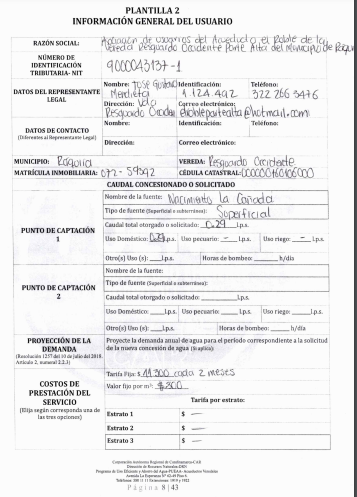 PLANTILLA 2
INFORMACIÓN GENERAL DEL USUARIO
RAZÓN SOCIAL: Asociación de usuarios del Acueducto el Roble de la
Vereda Resguardo Occidente Parte Alta del Municipio de Ráqui
NÚMERO DE IDENTIFICACIÓN TRIBUTARIA- NIT
9000043137-1
DATOS DEL REPRESENTANTE LEGAL
Nombre: José Gustavo Mendieta
Identificación: 1.124.492
Teléfono: 322 266 5476
Dirección: Vda Resguardo Occiden
Correo electrónico: elroblepartealta@hotmail.com
DATOS DE CONTACTO
(Diferentes al Representante Legal)
Nombre: Identificación: Teléfono:
Dirección: Correo electrónico:
MUNICIPIO: Raquira VEREDA: Resguardo Occidente
MATRÍCULA INMOBILIARIA: 072-59542 CÉDULA CATASTRAL:
CAUDAL CONCESIONADO O SOLICITADO
PUNTO DE CAPTACIÓN 1
Nombre de la fuente: Nacimiento la Cañada
Tipo de fuente (Superficial o subterránea): Superficial
Caudal total otorgado o solicitado: 0.29 l.p.s.
Uso Doméstico: 0.29 l.p.s. Uso pecuario: - l.p.s. Uso riego: - l.p.s.
Otro(s) Uso (s): l.p.s. Horas de bombeo: h/día
PUNTO DE CAPTACIÓN 2
Nombre de la fuente:
Tipo de fuente (Superficial o subterránea):
Caudal total otorgado o solicitado: l.p.s.
Uso Doméstico: l.p.s. Uso pecuario: l.p.s. Uso riego: l.p.s.
Otro(s) Uso (s): l.p.s. Horas de bombeo: h/día
PROYECCIÓN DE LA DEMANDA
(Resolución 1257 del 10 de julio del 2018. Artículo 2, numeral 2.2.3)
Proyecte la demanda anual de agua para el periodo correspondiente a la solicitud
de la nueva concesión de agua (Si aplica):
COSTOS DE PRESTACIÓN DEL SERVICIO
(Elija según corresponda una de las tres opciones)
Tarifa Fija: $ 11.300 cada 2 meses
Valor fijo por m³: $ 800
Tarifa por estrato:
Estrato 1 $ —
Estrato 2 $ —
Estrato 3 $ —
Corporación Autónoma Regional de Cundinamarca-CAR
Dirección de Recursos Naturales-DRN
Programa de Uso Eficiente y Ahorro del Agua-PUEAA- Acueductos Veredales
Página 8 | 43